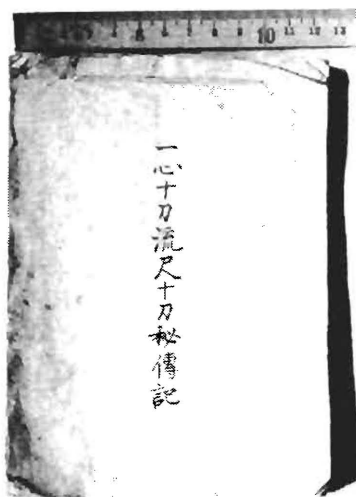 5 10 11 12 13
一心十刀流尺十刀秘傳記